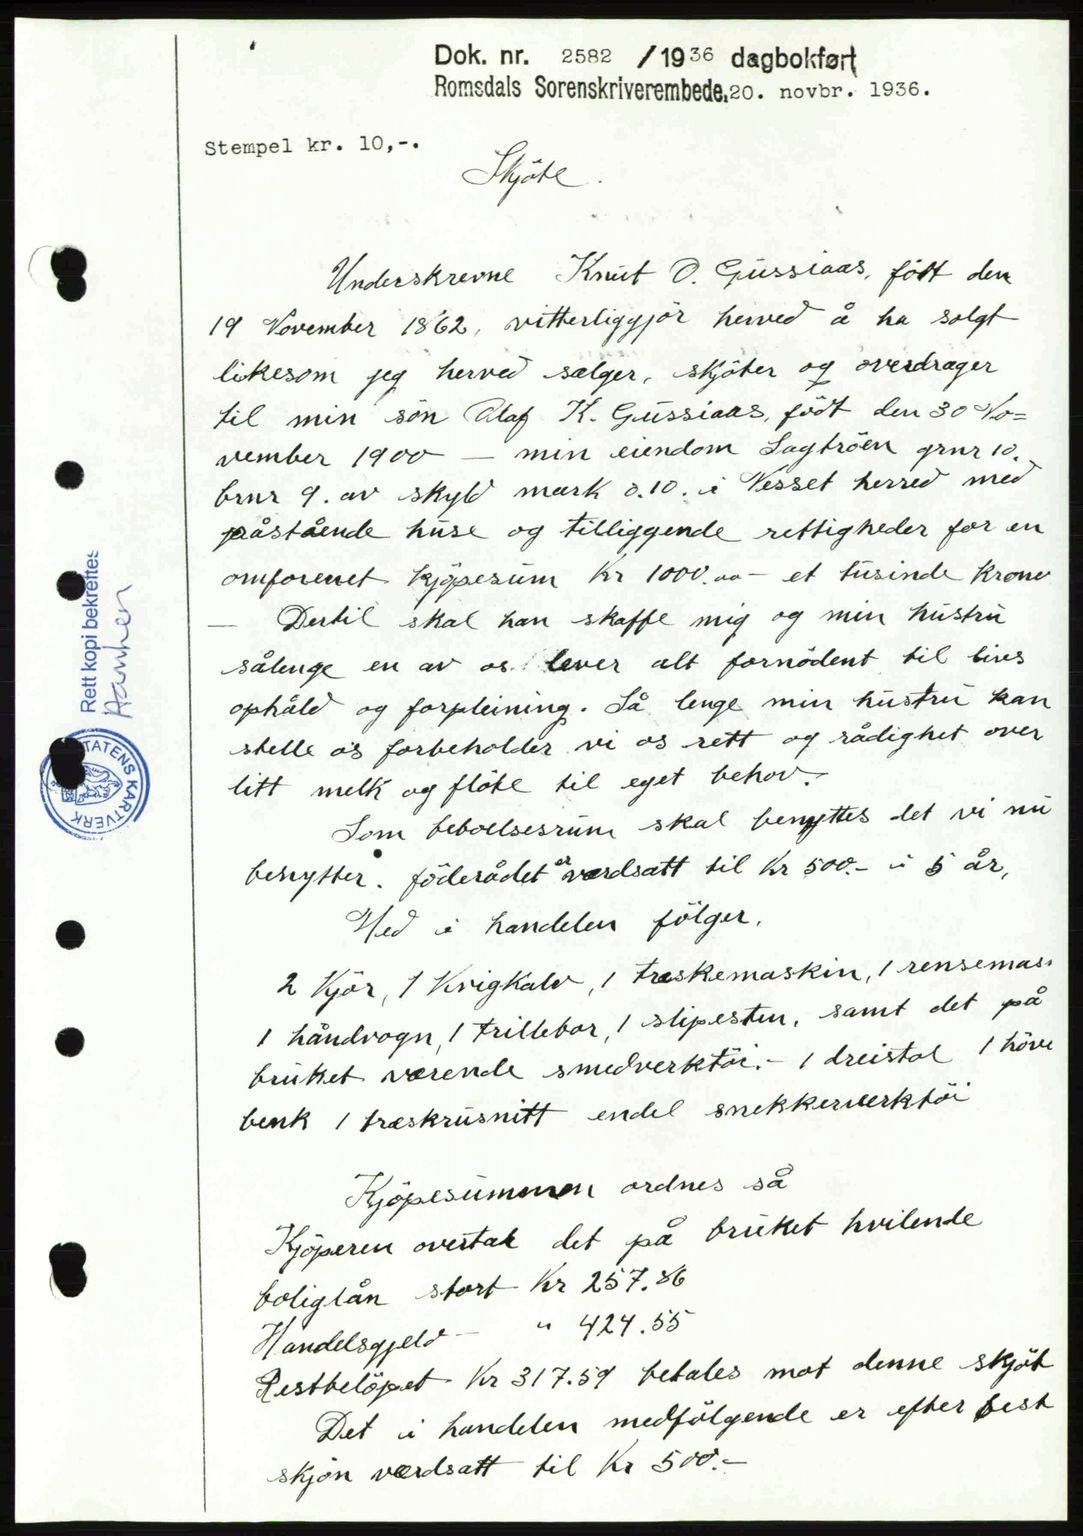 Dok. nr. 2582 /1936 dagbokført
Romsdals Sorenskriverembede, 20. novbr. 1936.
Stempel kr. 10,-.
Skjöte.
Underskrevne Knut O. Gussiaas, födt den
19 November 1862, vitterliggjör herved å ha solgt
likesom jeg herved sælger, skjöter og overdrager
til min sön Olaf K. Gussiaas, födt den 30 No=
vember 1900 — min eiendom Sagtröen grnr 10.
brnr 9. av skyld mark 0.10. i Nesset herred med
påstående huse og tilliggende rettigheder for en
omforenet kjöpesum Kr 1000.00 — et tusinde kroner
— Dertil skal han skaffe mig og min hustru
sålenge en av os lever alt fornödent til livs
ophåld og forpleining. Så lenge min hustru kan
stelle os forbeholder vi os rett og rådighet over
litt melk og flöte til eget behov.-
Som beboelsesrum skal benyttes det vi nu
benytter. föderådet er værdsatt til Kr 500.- i 5 år,
Med i handelen fölger.
2 Kjör, 1 Kvigkalv, 1 træskemaskin, 1 rensemas
1 håndvogn, 1 trillebor, 1 slipesten, samt det på
bruket værende smedverktöi.- 1 dreistol 1 hövel
benk 1 træskrusnitt endel snekkerverktöi
Kjöpesummen ordnes så
Kjöperen overtar det på bruket hvilende
boliglån stort Kr 257.86
Handelsgjeld — " 424.55
Restbelöpet Kr 317.59 betales mot denne skjöt
Det i handelen medfölgende er efter best
skjön værdsatt til Kr 500.-
Rett kopi bekreftes
STATENS KARTVERK